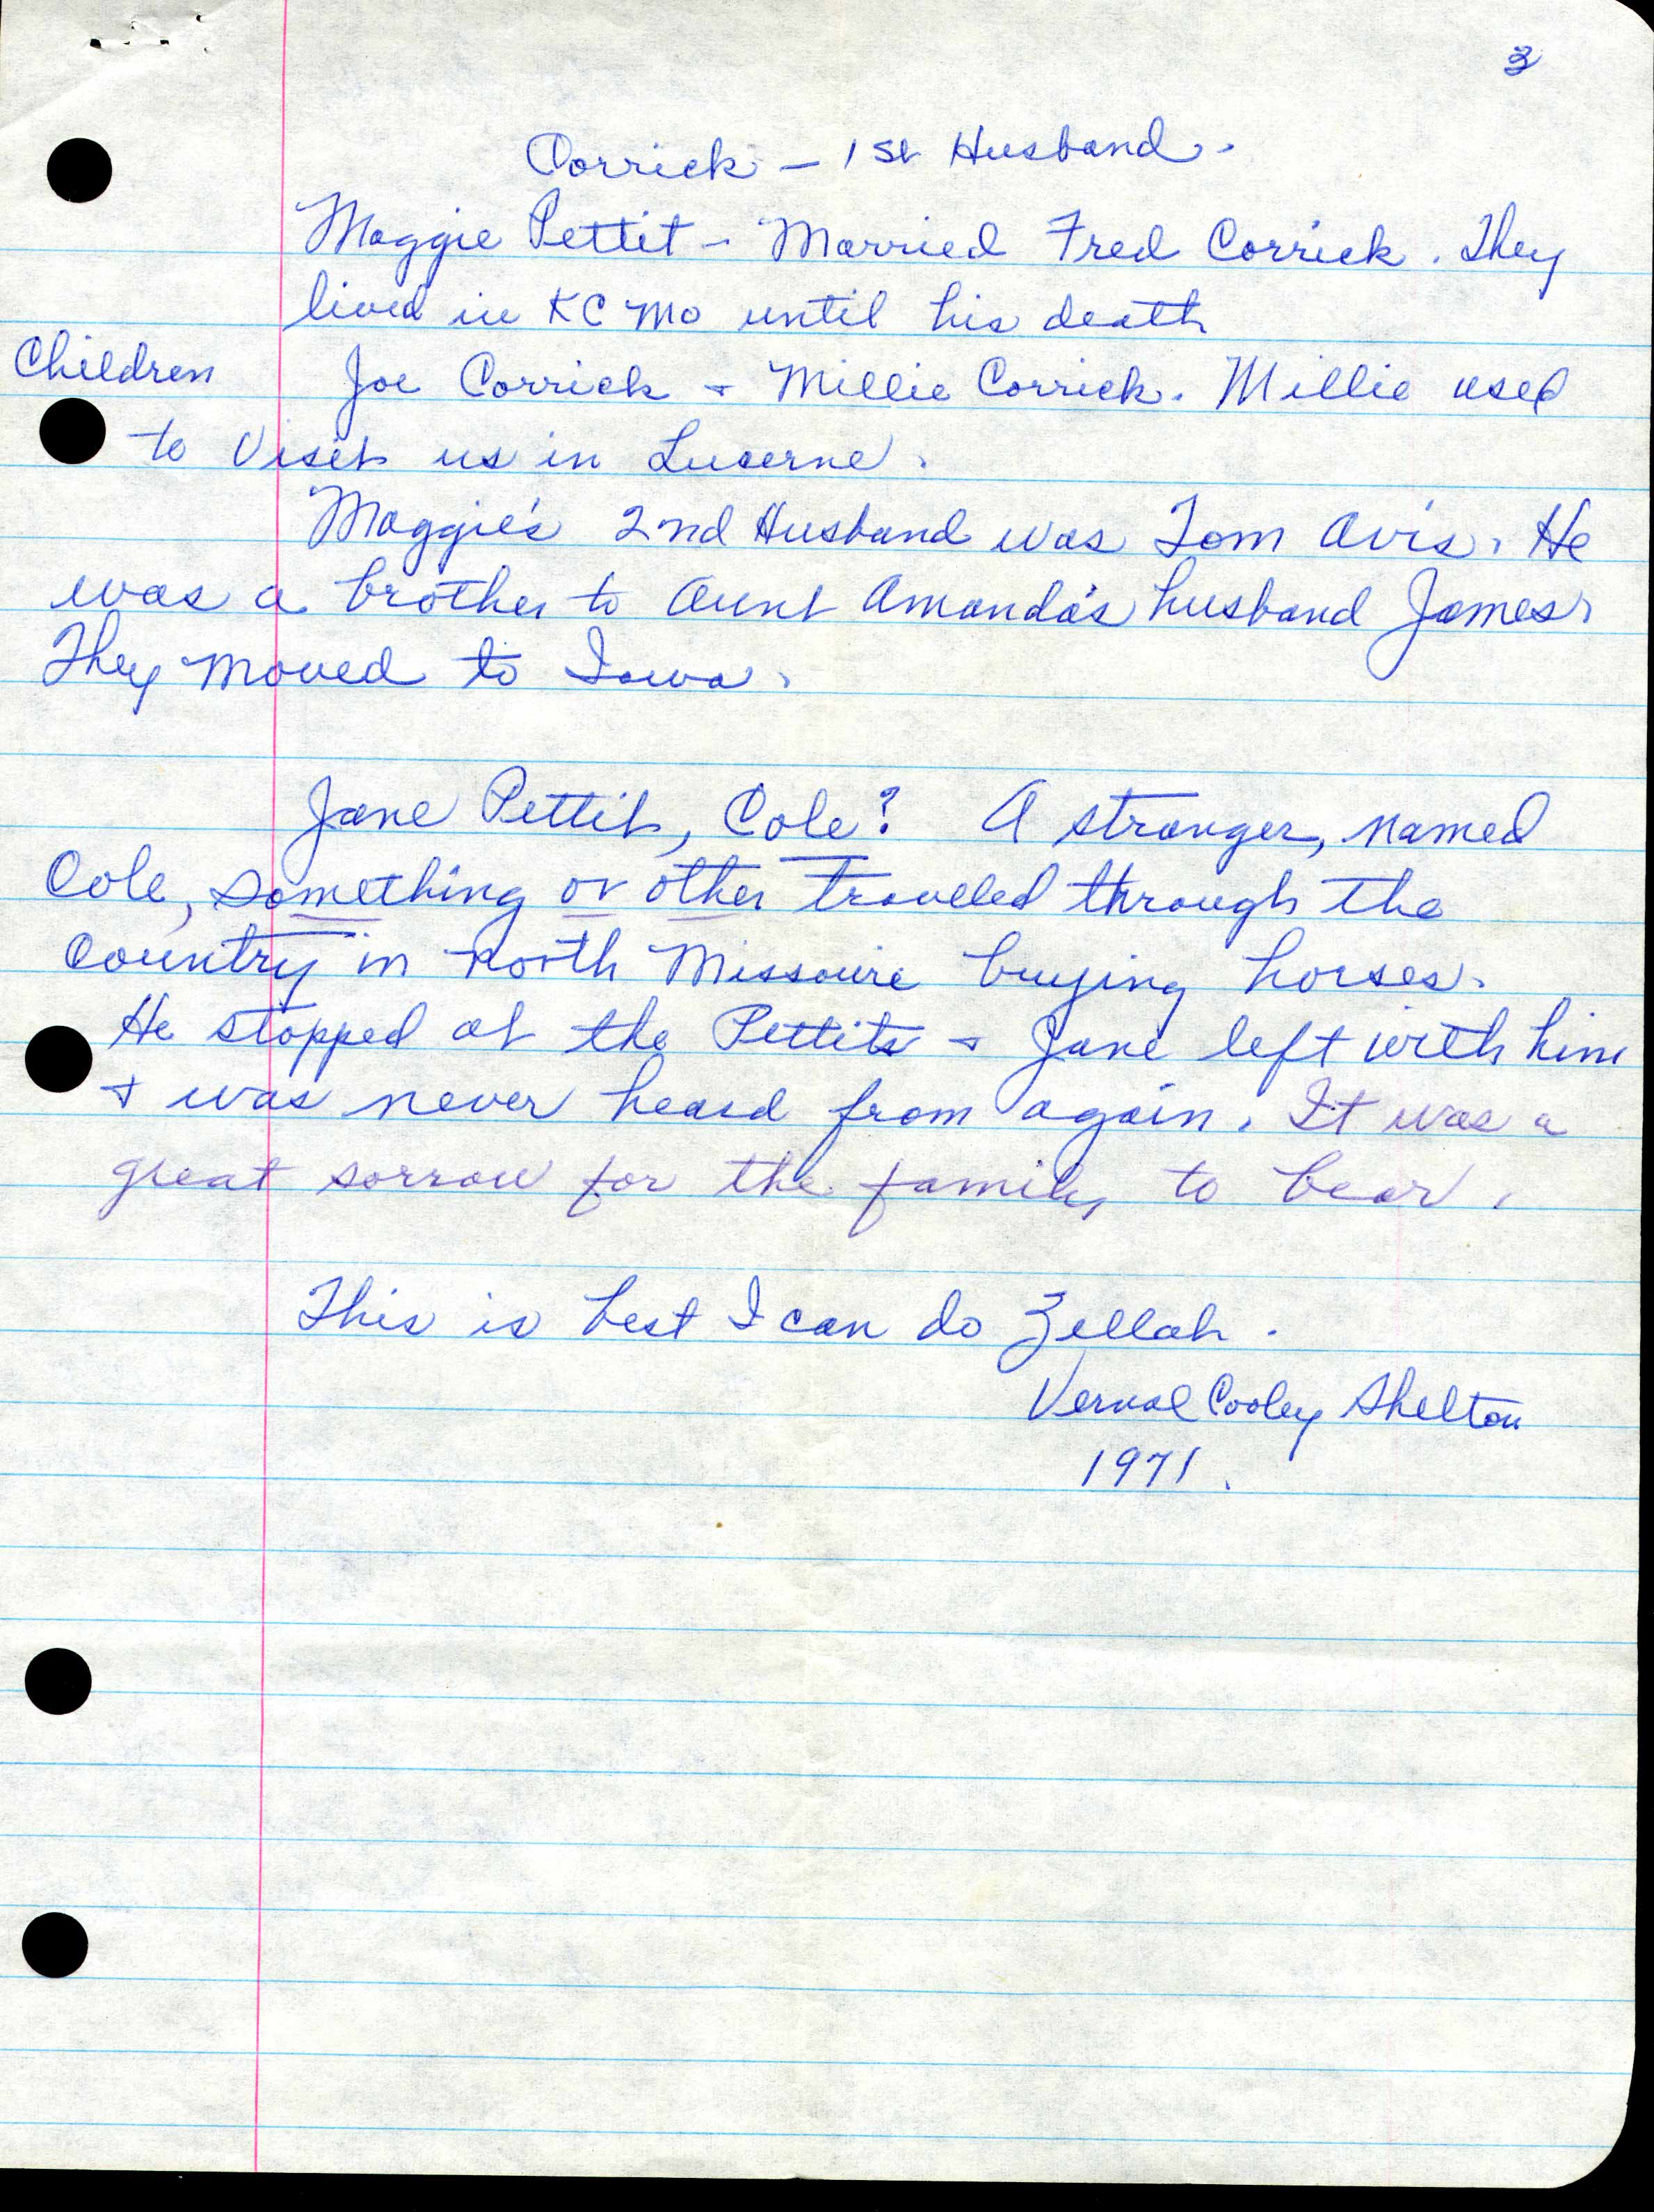 3
Corrick - 1st Husband.
Maggie Pettit - Married Fred Corrick. They
lived in KC Mo until his death
Children Joe Corrick + Millie Corrick. Millie used
to visit us in Lucerne.
Maggie's 2nd Husband was Tom Avis. He
was a brother to Aunt Amanda's husband James.
They moved to Iowa.
Jane Pettit, Cole? A stranger, named
Cole, something or other traveled through the
country in north Missouri buying horses.
He stopped at the Pettits + Jane left with him
+ was never heard from again. It was a
great sorrow for the family to bear.
This is best I can do Zellah.
Vernal Cooley Shelton
1971.